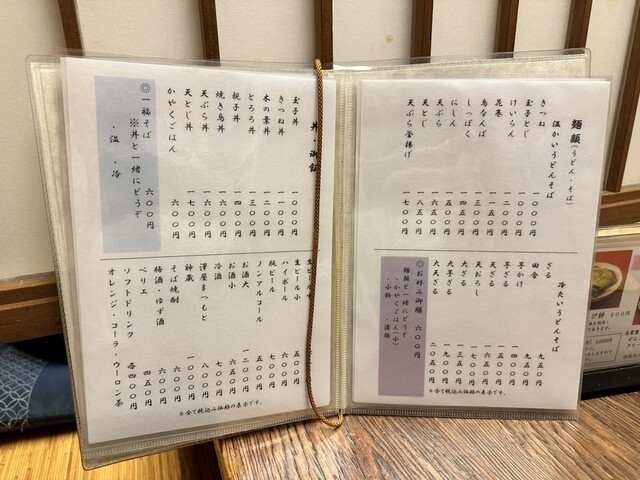 麺類(うどん・そば)
温かいうどんそば
きつね 一〇〇〇円
玉子とじ 一〇〇〇円
けいらん
花巻
鳥なんば 一三〇〇円
しっぽく 一四五〇円
にしん 一五〇〇円
天ぷら 一六五〇円
天とじ 一八五〇円
天ぷら釜揚げ 一七〇〇円
冷たいうどんそば
ざる 九五〇円
田舎 九五〇円
芋かけ
芋ざる
天おろし
天ざる
大芋ざる
大天ざる 二〇五〇円
◎お好み御膳 六〇〇円
麺類と一緒にどうぞ
・かやくごはん(小)
・小鉢 ・漬物
※全て税込み価格の表示です。
丼・御飯
玉子丼 一〇〇〇円
きつね丼 一〇〇〇円
木の葉丼 一二〇〇円
とろろ丼 一三〇〇円
親子丼 一四〇〇円
焼き鳥丼 一六〇〇円
天ぷら丼 一六〇〇円
天とじ丼 一七〇〇円
かやくごはん 六〇〇円
◎一福そば 六〇〇円
※丼と一緒にどうぞ
・温 ・冷
生ビール小 五〇〇円
ハイボール 六〇〇円
瓶ビール 七〇〇円
ノンアルコール 五〇〇円
お酒大 一二〇〇円
お酒小 六五〇円
冷酒
澤屋まつもと 八〇〇円
神蔵 一〇〇〇円
そば焼酎 六〇〇円
梅酒・ゆず酒 六〇〇円
ペリエ 四五〇円
ソフトドリンク 各四〇〇円
オレンジ・コーラ・ウーロン茶
※全て税込み価格の表示です。